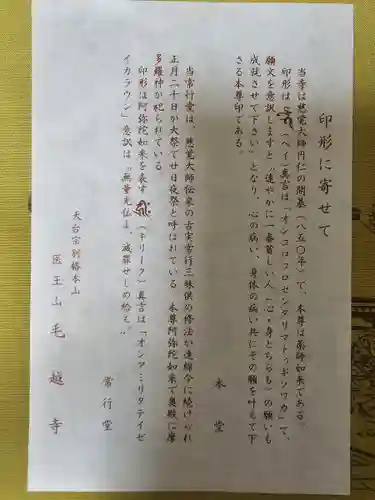 印形に寄せて
当寺は慈覚大師円仁の開基（八五〇年）で、本尊は薬師如来である
印形は（ベイ）真言は「オンコロコロセンダリマトゥギソワカ」で、
願文を意訳しますと〝速やかに一番苦しい人（心・身どちらも）の願いも
成就させて下さい〟となり、心の病い、身体の病い共にその願を叶えて下
さる本尊印である。
本堂
当常行堂は、慈覚大師伝来の古実常行三昧供の修法が連綿今に続けられ
正月二十日が大祭で廿日夜祭と呼ばれている 本尊阿弥陀如来で奥殿に摩
多羅神が祀られている
印形は阿弥陀如来を表す（キリーク）真言は「オンアミリタテイゼ
イカラウン」意訳は〝無量光仏よ、滅罪せしめ給え〟
常行堂
天台宗別格本山
医王山毛越寺